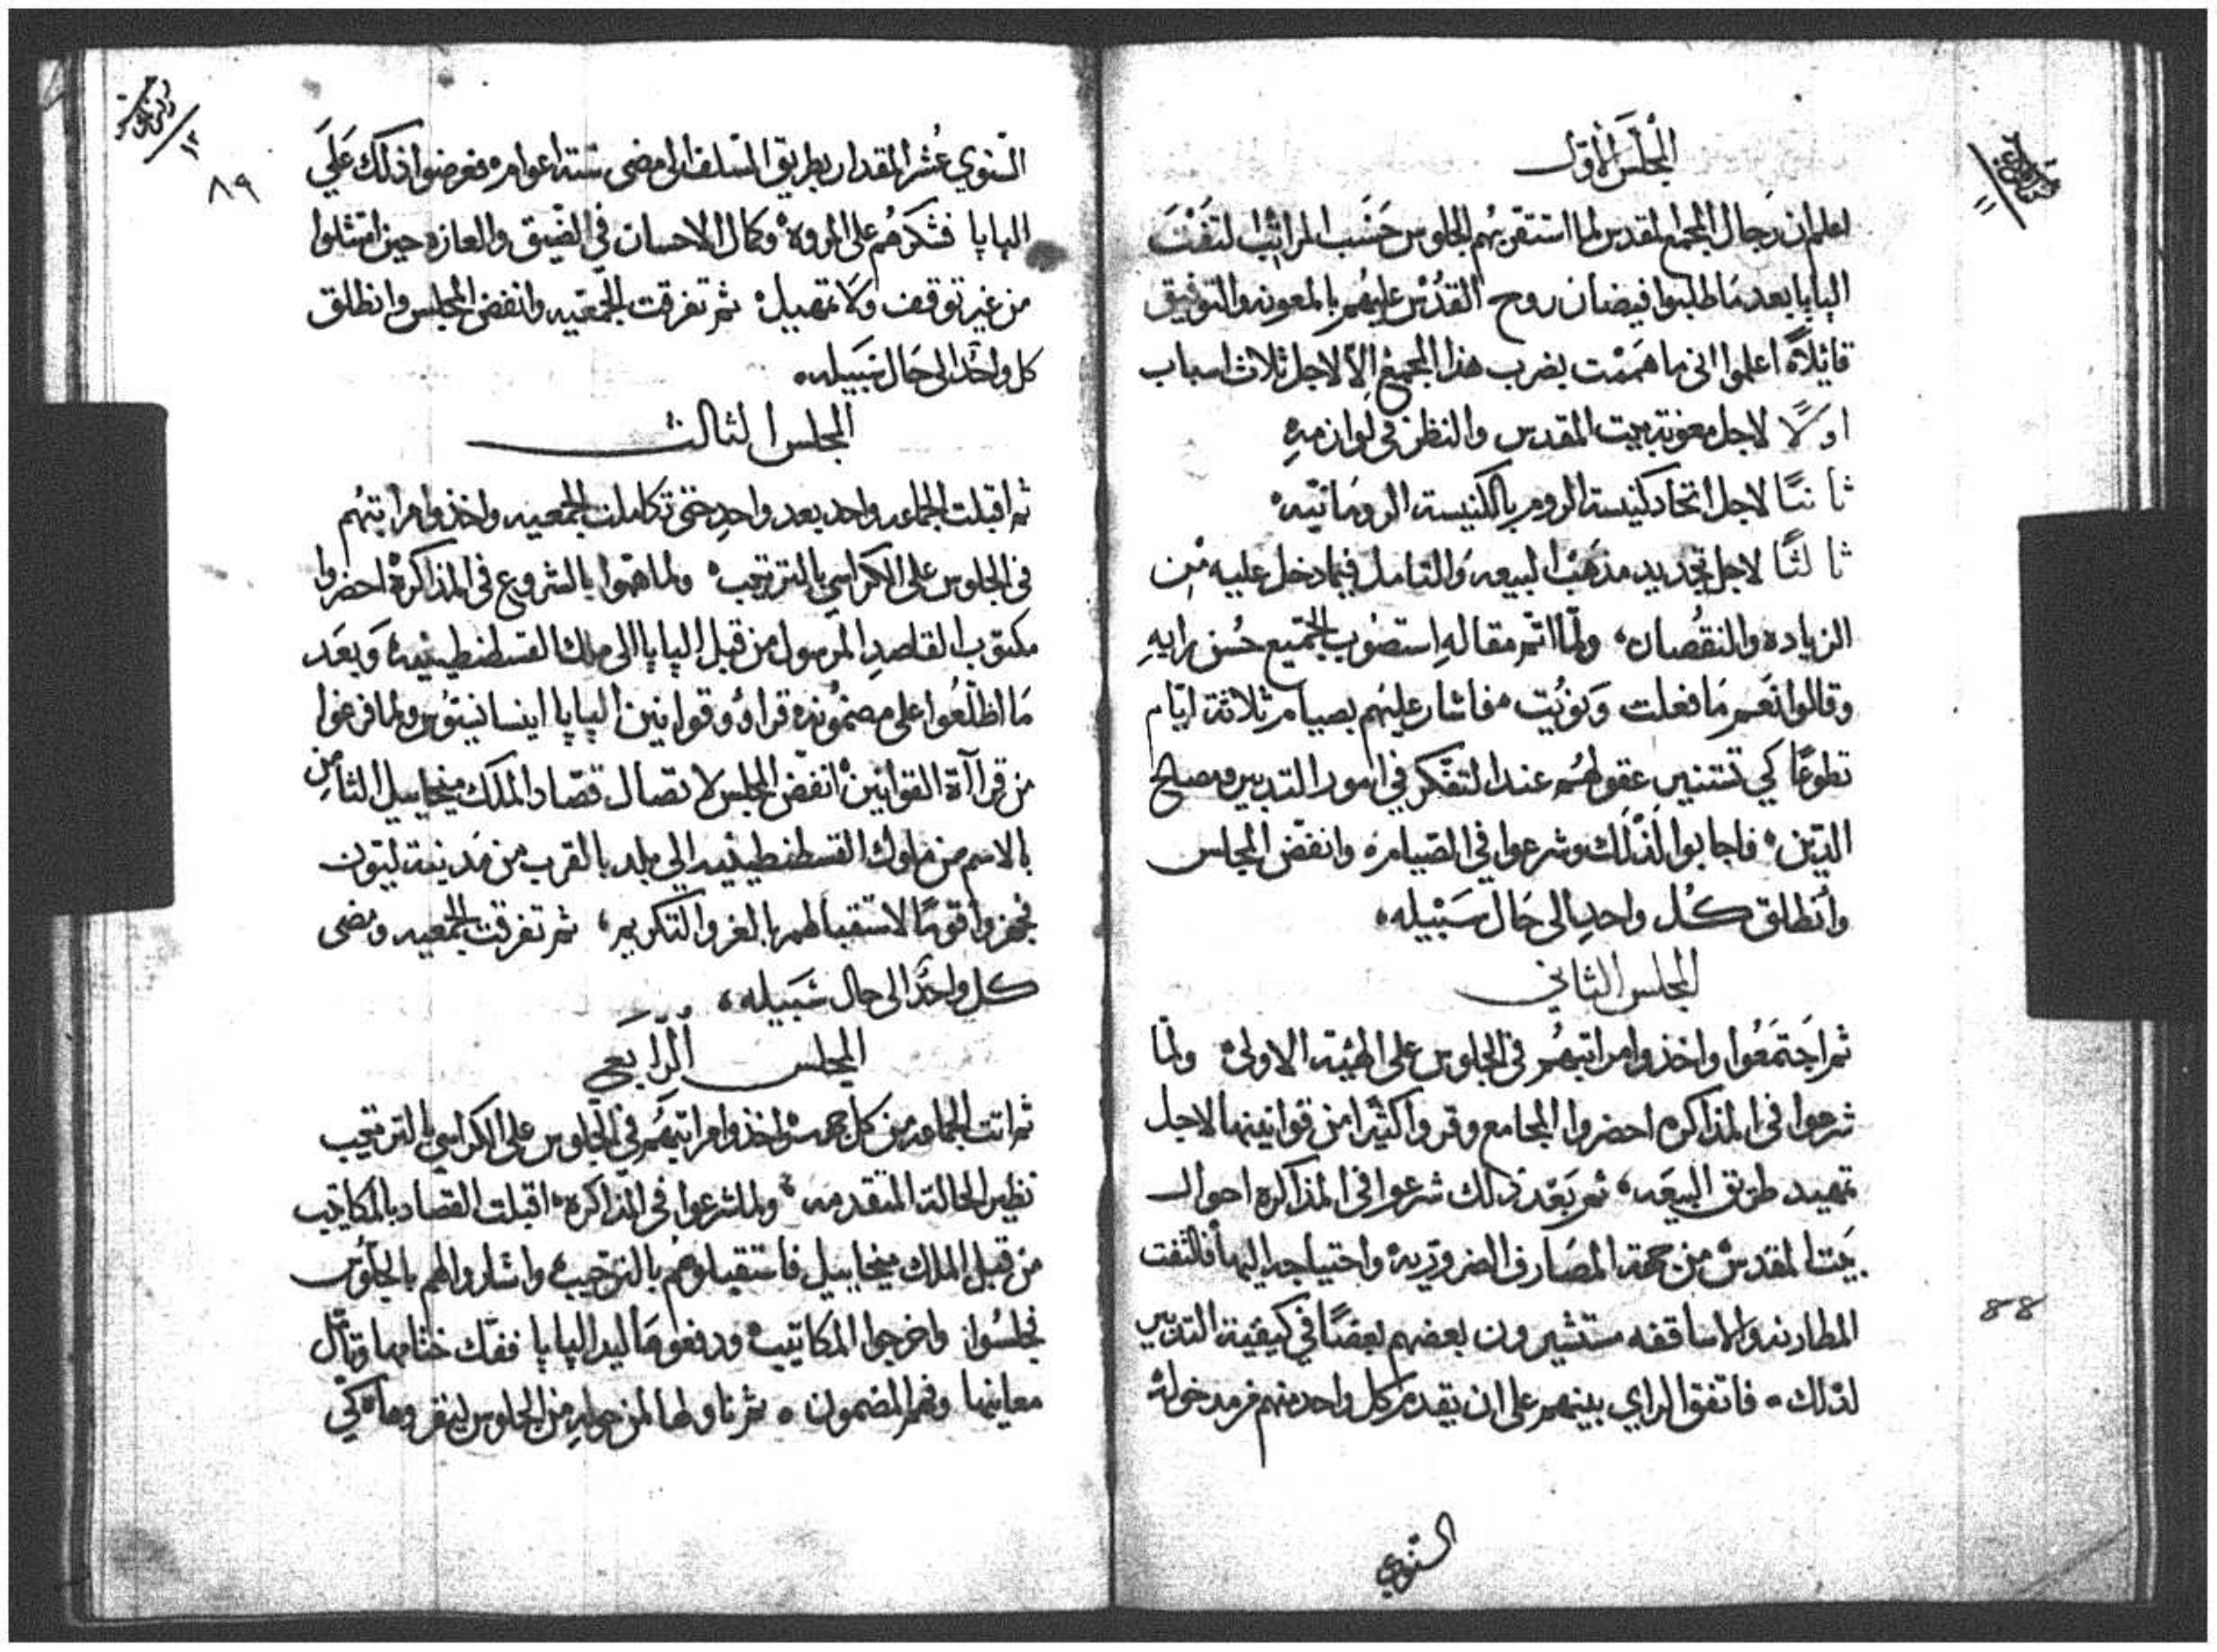 المجلس الأول
اعلم ان رجال المجمع المقدس لما استقر بهم الجلوس حسب المراتب التفت
البابا بعد ما طلبوا فيضان روح القدس عليهم بالمعونه والتوفيق
قايلاً اعلموا انى ما هممت بضرب هذا المجمع الا لاجل ثلاث اسباب
اولاً لاجل معونة بيت المقدس والنظر في لوازمه
ثانيًا لاجل اتحاد كنيسة الروم بالكنيسة الرومانيه
ثالثًا لاجل تجديد مذهب البيعه والتامل فيما دخل عليه من
الزياده والنقصان، ولما اتم مقاله استصوب الجميع حسن رايه
وقالوا نعم ما فعلت ونويت فاشار عليهم بصيام ثلاثة ايام
تطوعًا كي تستنير عقولهم عند التفكر في امور التدبير ومصالح
الدين فاجابوا لذلك وشرعوا في الصيام وانفض المجلس
وانطلق كل واحد الى حال سبيله
المجلس الثاني
ثم اجتمعوا واخذوا مراتبهم في الجلوس على الهيئه الاولى ولما
شرعوا في المذاكره احضروا المجامع وقروا كثيرا من قوانينها لاجل
تمهيد طريق البيعه، ثم بعد ذلك شرعوا في المذاكره احوال
بيت المقدس من جهة المصارف الضروريه واحتياجه اليها فالتفت
المطارنه والاساقفه مستشيرون بعضهم بعضًا في كيفية التدبير
لذلك فاتفق الراي بينهم على ان يقدم كل واحد منهم من مدخوله
السنوي
88
١١
١٢
٨٩
السنوي عشر المقدار بطريق السلف الى مضى ستة اعوام فعرضوا ذلك على
البابا فشكرهم على المروه وكمال الاحسان في الضيق والعازه حين امتثلوا
من غير توقف ولا تمهيل ثم تفرقت الجمعيه وانفض المجلس وانطلق
كل واحد الى حال سبيله
المجلس الثالث
ثم اقبلت الجماعه واحد بعد واحد حتى تكاملت الجمعيه واخذوا مراتبهم
في الجلوس على الكراسي بالترتيب ولما هموا بالشروع في المذاكرة احضروا
مكتوب القاصد المرسول من قبل البابا الى ملك القسطنطينيه وبعد
ما اطلعوا على مضمونه قراوه وقوانين البابا اينسانيتوس ولما فرغوا
من قراآة القوانين انفض المجلس لاتصال قصاد الملك ميخاييل الثامن
بالاسم من ملوك القسطنطينيه الى بلد بالقرب من مدينة ليون
فجهزوا قومًا لاستقبالهم بالعز والتكريم، ثم تفرقت الجمعيه ومضى
كل واحد الى حال سبيله،
المجلس الرابع
ثم اتت الجماعه من كل جهه واخذوا مراتبهم في الجلوس على الكراسي بالترتيب
نظير الحالة المتقدمه ولما شرعوا في المذاكره اقبلت القصاد بالمكاتيب
من قبل الملك ميخاييل فاستقبلوهم بالترحيب واشاروا لهم بالجلوس
فجلسوا واخرجوا المكاتيب ودفعوها ليد البابا ففك ختامها وتأمل
معانيها وفهم المضمون ثم ناولها لمن حوله من الجلوس ليقروها كي